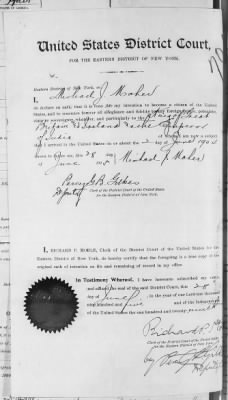 United States District Court,
FOR THE EASTERN DISTRICT OF NEW YORK.
Eastern District of New York, ss:
I, Michael J Maher
declare on oath, that it is bona fide my intention to become a citizen of the United
States, and to renounce forever all allegiance and fidelity to any foreign prince, potentate,
state or sovereignty whatever, and particularly to the King of Great
Britain & Ireland & the Emperor
of India
that I arrived in the United States on or about the 2 day of June 1902
Sworn to before me, this 28 day
June Michael J Maher
Percy G. B. Gilkes
Deputy Clerk of the District Court of the United States
for the Eastern District of New York.
I, RICHARD P. MORLE, Clerk of the District Court of the United States for the
Eastern District of New York, do hereby certify that the foregoing is a true copy of the
original declaration of intention on file and remaining of record in my office.
In Testimony Whereof, I have hereunto subscribed my name
and affixed the seal of the said District Court, this 28
day of June in the year of our Lord one thousand
nine hundred and and of the Independence
of the United States the one hundred and twenty
Richard P.
Clerk of the District Court of the United States
for the Eastern District of New York.
by